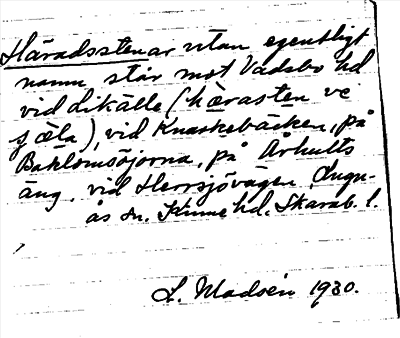 Häradsstenar utan egentligt
namn står mot Vadsbo hd
vid dikälle (hærasten ve
sjæla), vid Knaskebäcken, på
Baklomsöjorna, på Århults
äng, vid Herrsjövägen, Lugn-
ås sn. Kinne hd. Skarab. l.
L. Madsén 1930.